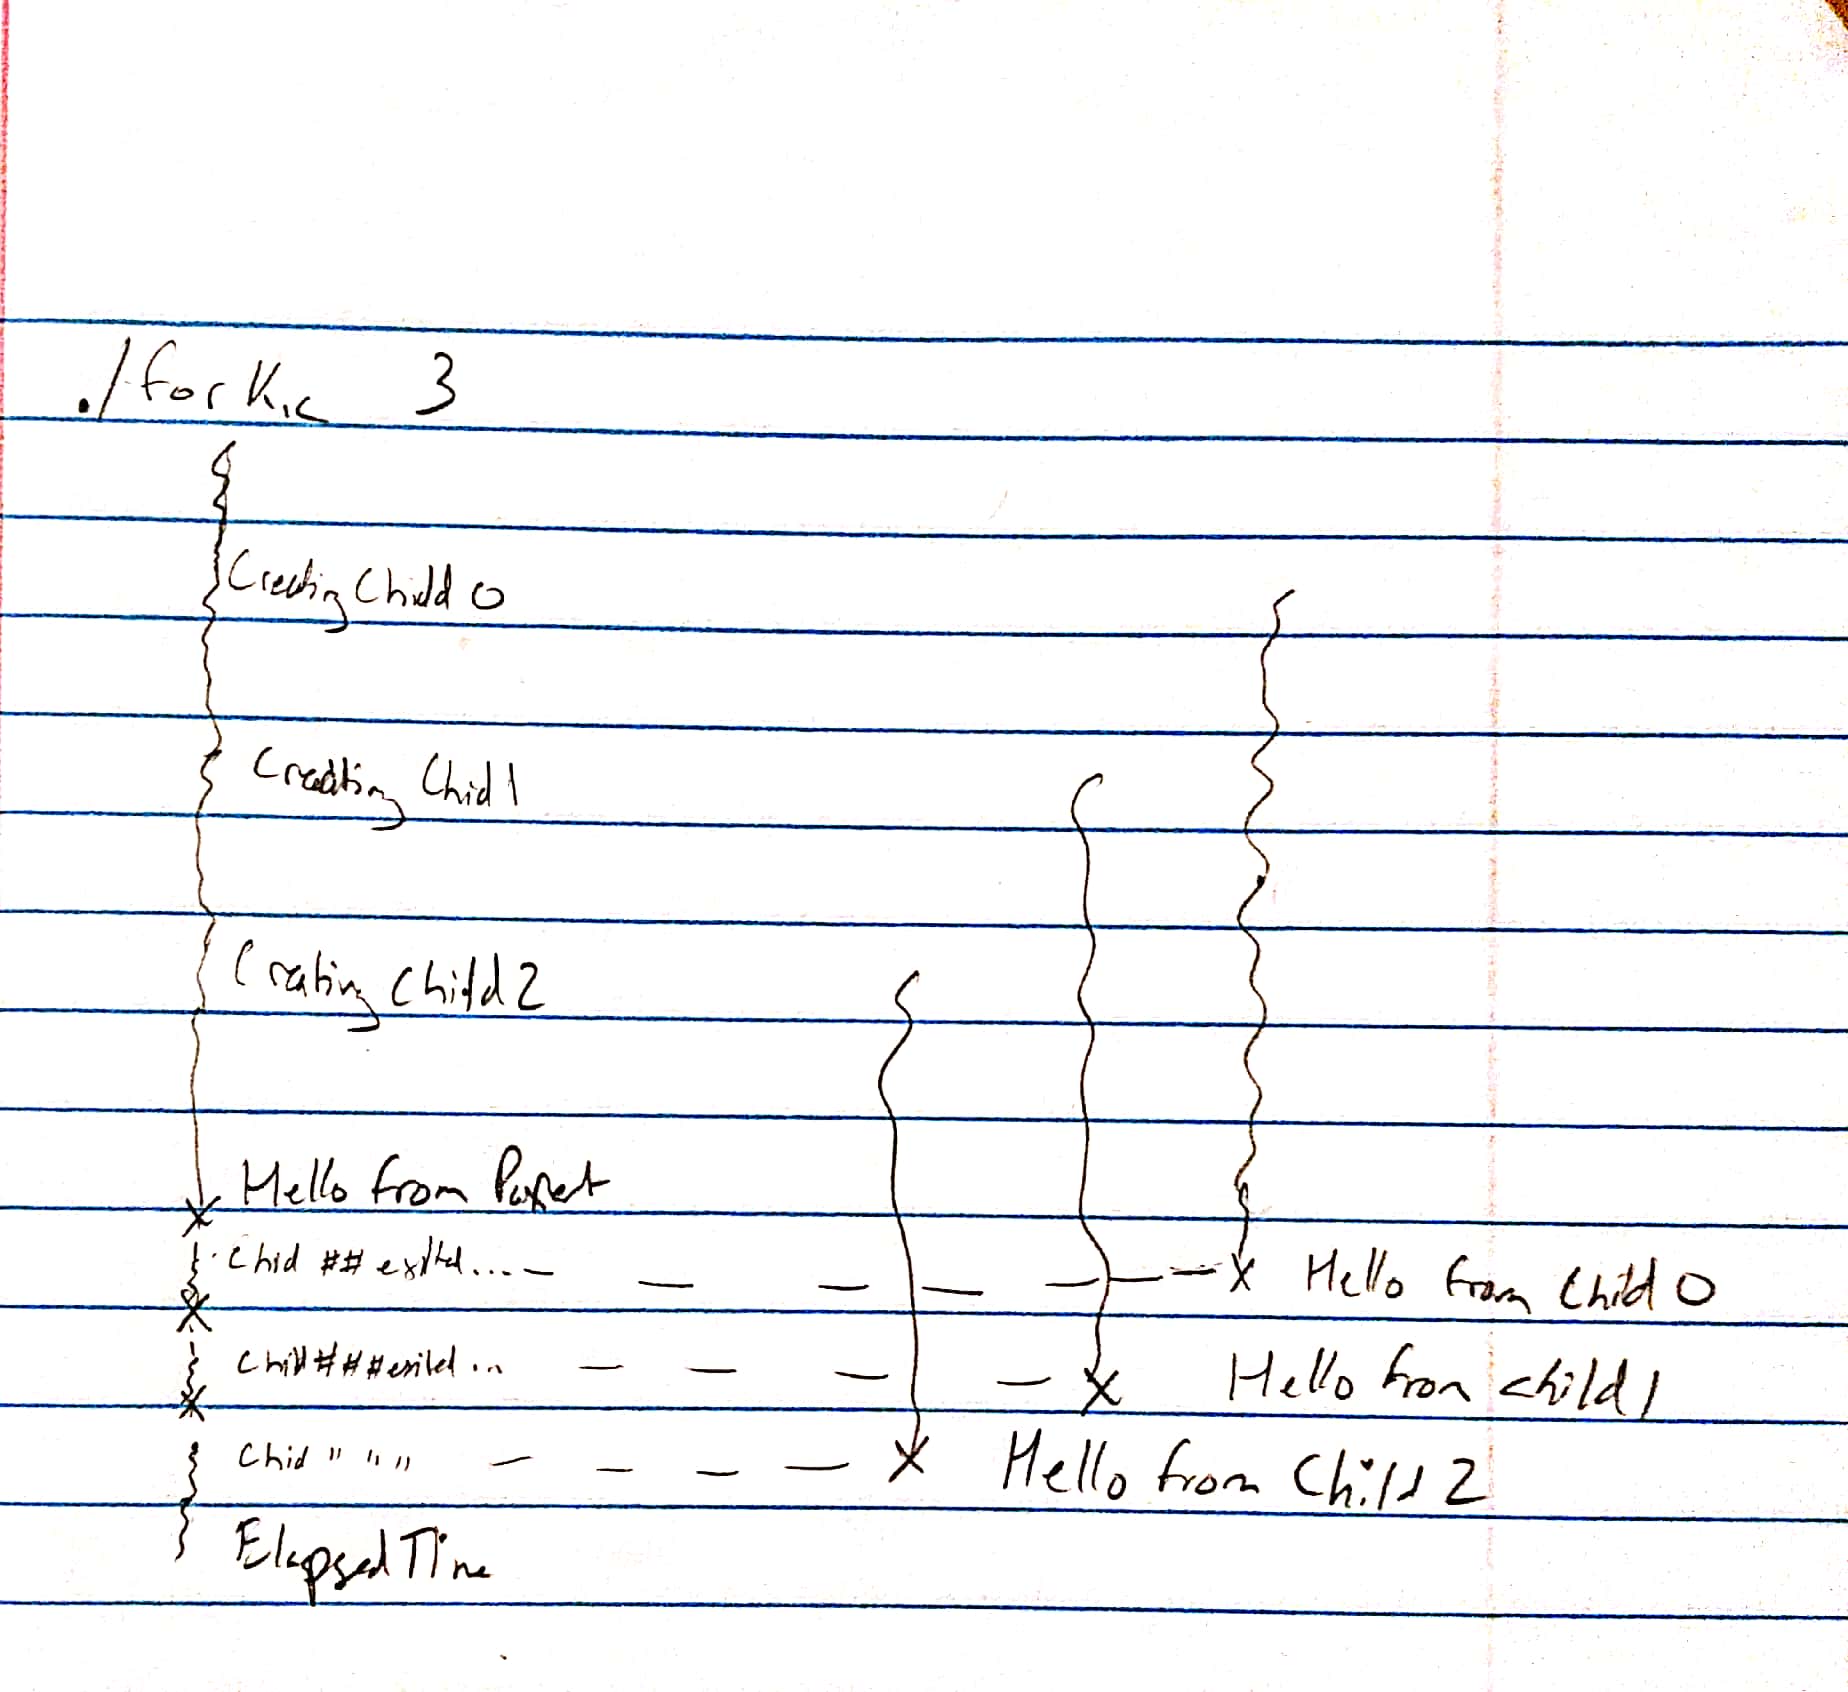 ./fork.c 3
Creating Child 0
Creating Chid 1
Creating Child 2
Hello from Parent
Chid ## exited.... Hello from Child 0
Child ### exited ... Hello from child 1
Chid " " " Hello from Child 2
Elapsed Time